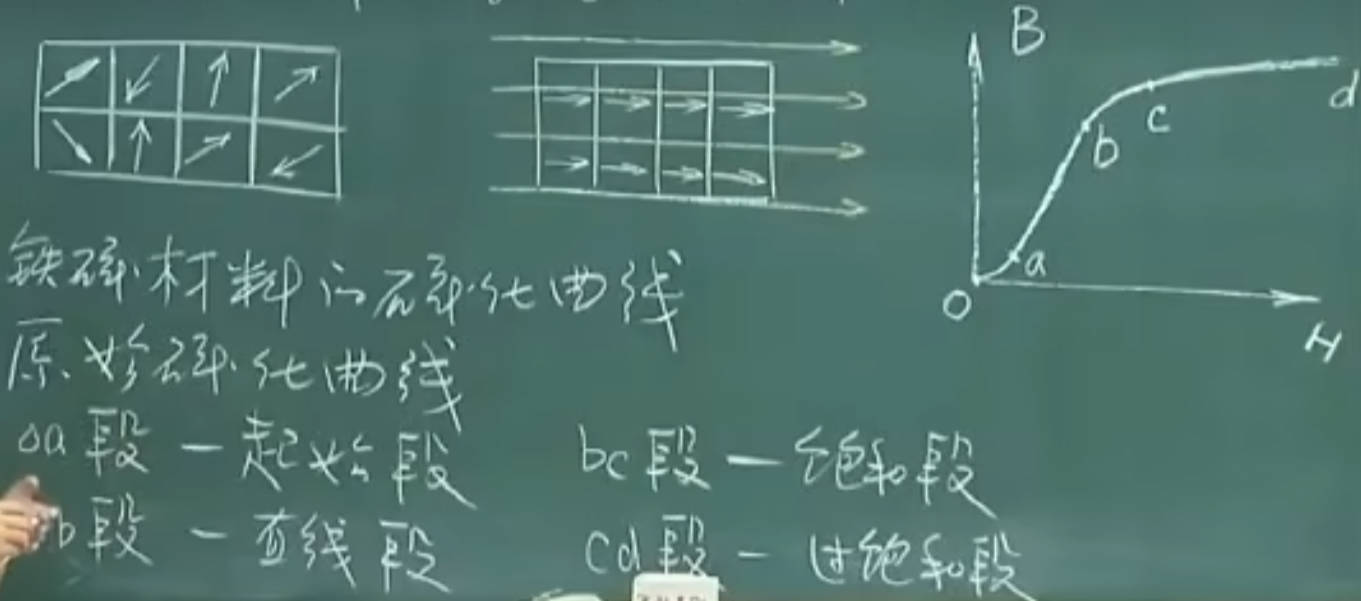 B
d
c
b
a
O
H
铁磁材料的磁化曲线
原始磁化曲线
oa段—起始段
bc段—饱和段
b段—直线段
cd段—过饱和段